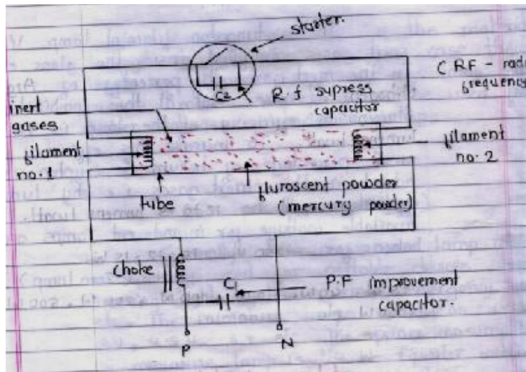 starter.
C2
R.f supress
capacitor
(RF - radio
frequency
inert
gases
filament
no.1
filament
no.2
tube
fluroscent powder
(mercury powder)
Choke
C1
P.F improvement
capacitor.
P
N